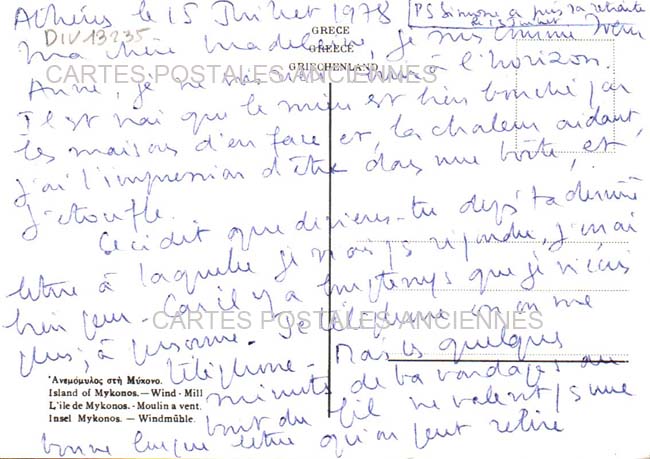 Athènes le 15 Juillet 1978
P.S Simone a pris sa retraite
le 15 Juillet
DIV 13235
GRECE
GREECE
GRIECHENLAND
Ma chère Madeleine, je suis comme
CARTES POSTALES ANCIENNES
Anne, je ne à l'horizon.
Il est vrai que le mien est bien bouché par
les maisons d'en face et, la chaleur aidant,
j'ai l'impression d'être dans une boîte, et
j'étouffe.
Ceci dit que deviens-tu depuis ta dernière
lettre à laquelle je n'ai pas répondu, j'en ai
bien peur. Car il y a longtemps que je n'écris
CARTES POSTALES ANCIENNES
plus, à personne. Je téléphone ou on me
téléphone. Mais quelques
minutes de bavardages au
bout du fil ne valent pas une
bonne longue lettre qu'on peut relire
Ἀνεμόμυλος στή Μύκονο.
Island of Mykonos. — Wind - Mill
L'ile de Mykonos. - Moulin a vent.
Insel Mykonos. — Windmühle.